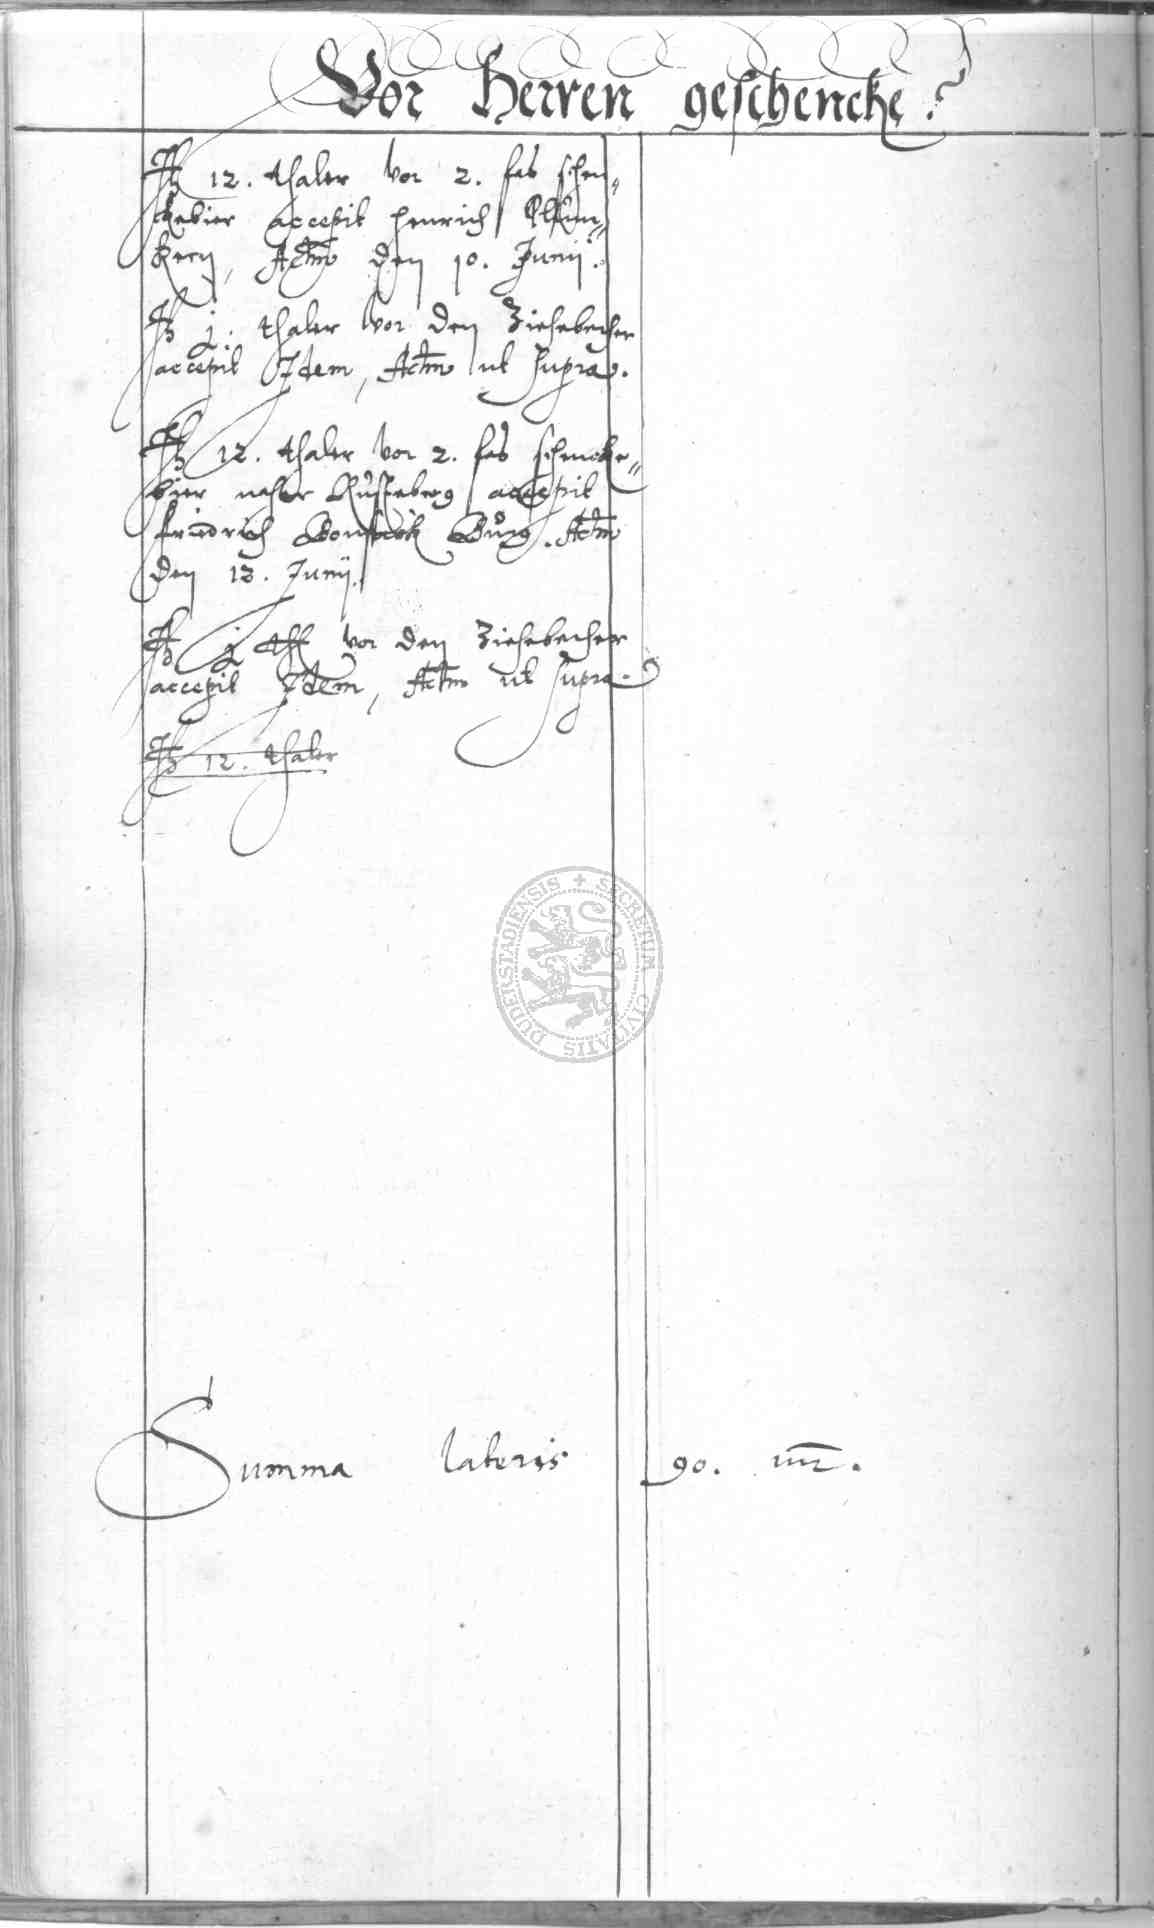 Vor Herren geschencke.
It 12. thaler vor 2. fas schen„
ckebier accepit Henrich
den 10. Junij.
It j. thaler vor den Ziesebecher
accepit Idem, Actum ut supra.
It 12. thaler vor 2. fas schencke„
bier naher Rusteberg accepit
Friedrich Actum
den 12. Junij.
It j thlr vor den Ziesebecher
accepit Idem, Actum ut supra.
It 12. thaler
SECRETUM CIVITATIS DUDERSTADIENSIS
Summa lateris 90. mr.